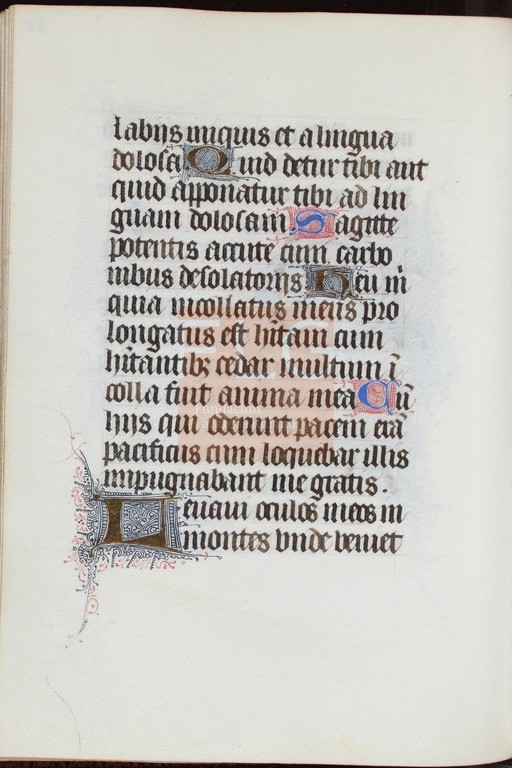 labijs iniquis et a lingua
dolosa Quid detur tibi aut
quid apponatur tibi ad lin
guam dolosam. Sagitte
potentis accute cum carbo
nibus desolatorijs Heu m̄
quia incollatus meus pro
longatus est hītaui cum
hītantibȝ cedar multum ī
colla fuit anima mea Cū
hijs qui oderunt pacem erā
pacificus cum loquebar illis
impugnabant me gratis.
Leuaui oculos meos in
montes vnde veniet